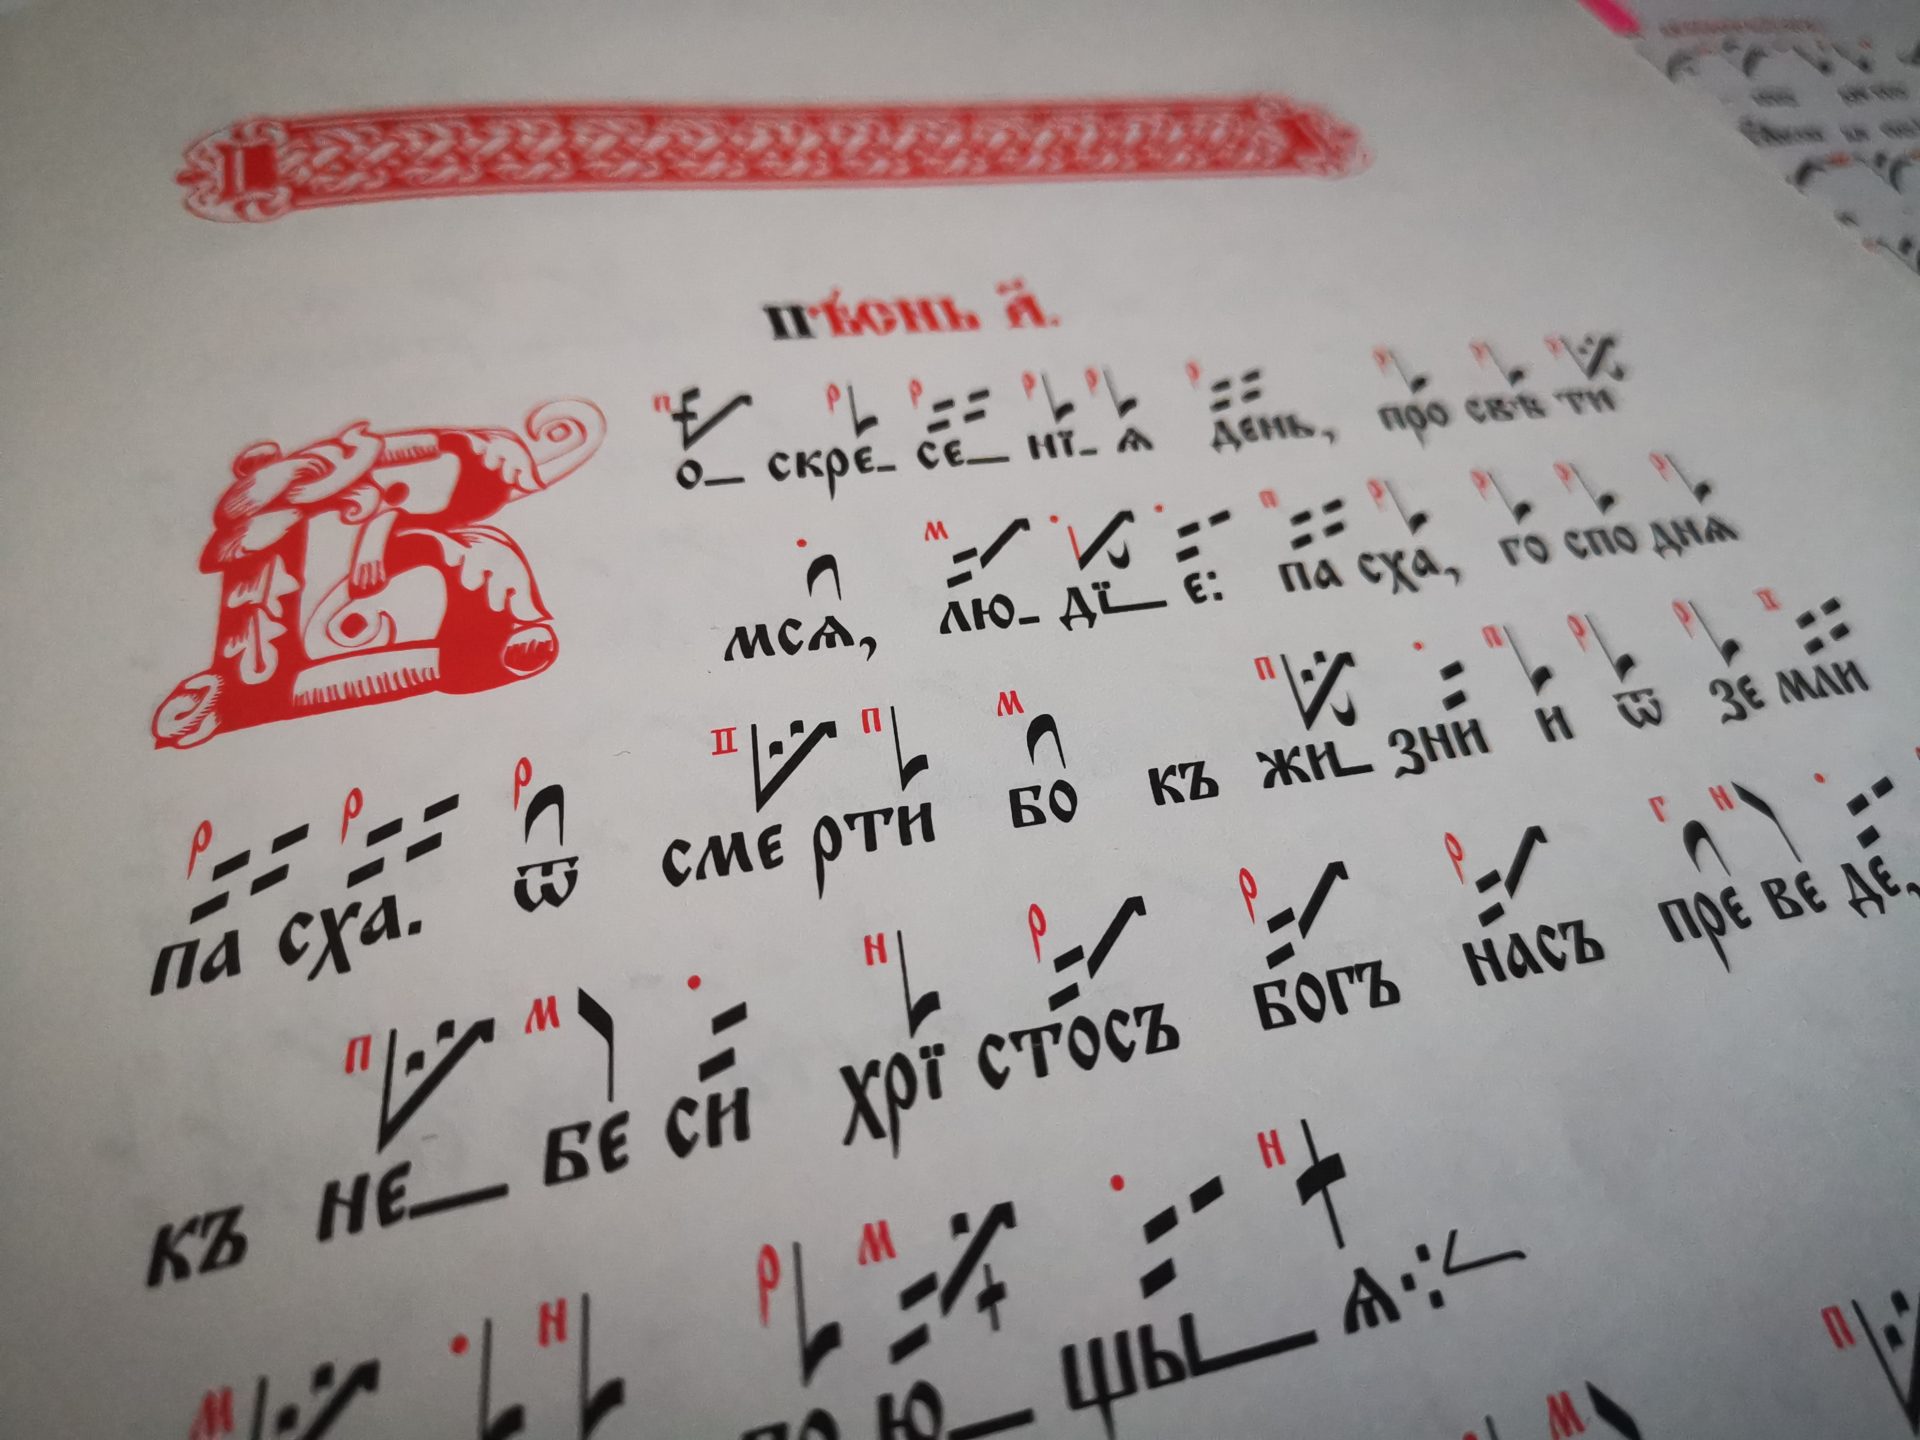 Пѣ́снь а҃.
Во_ скре_ се_ нї_ ѧ день, про свѣ ти
мсѧ, лю_ дї_ е: па сха, го спо днѧ
па сха. ѿ сме рти бо къ жи_ зни и ѿ зе мли
къ не_ бе си хрї стосъ богъ насъ пре ве де,
по ю_ щы_ ѧ